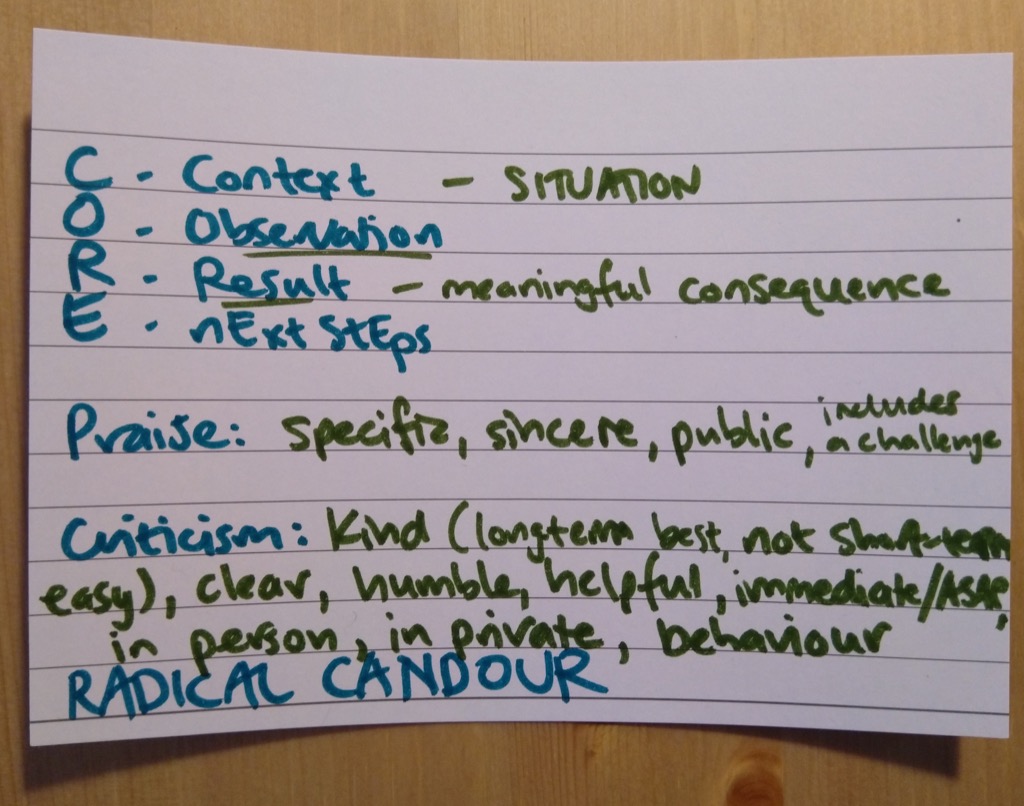 C - Context - SITUATION
O - Observation
R - Result - meaningful consequence
E - nExt StEps
Praise: specific, sincere, public, includes a challenge
Criticism: Kind (longterm best, not short-term
easy), clear, humble, helpful, immediate/ASAP,
in person, in private, behaviour
RADICAL CANDOUR